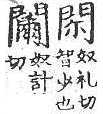 奴礼切
智少也
奴計
切